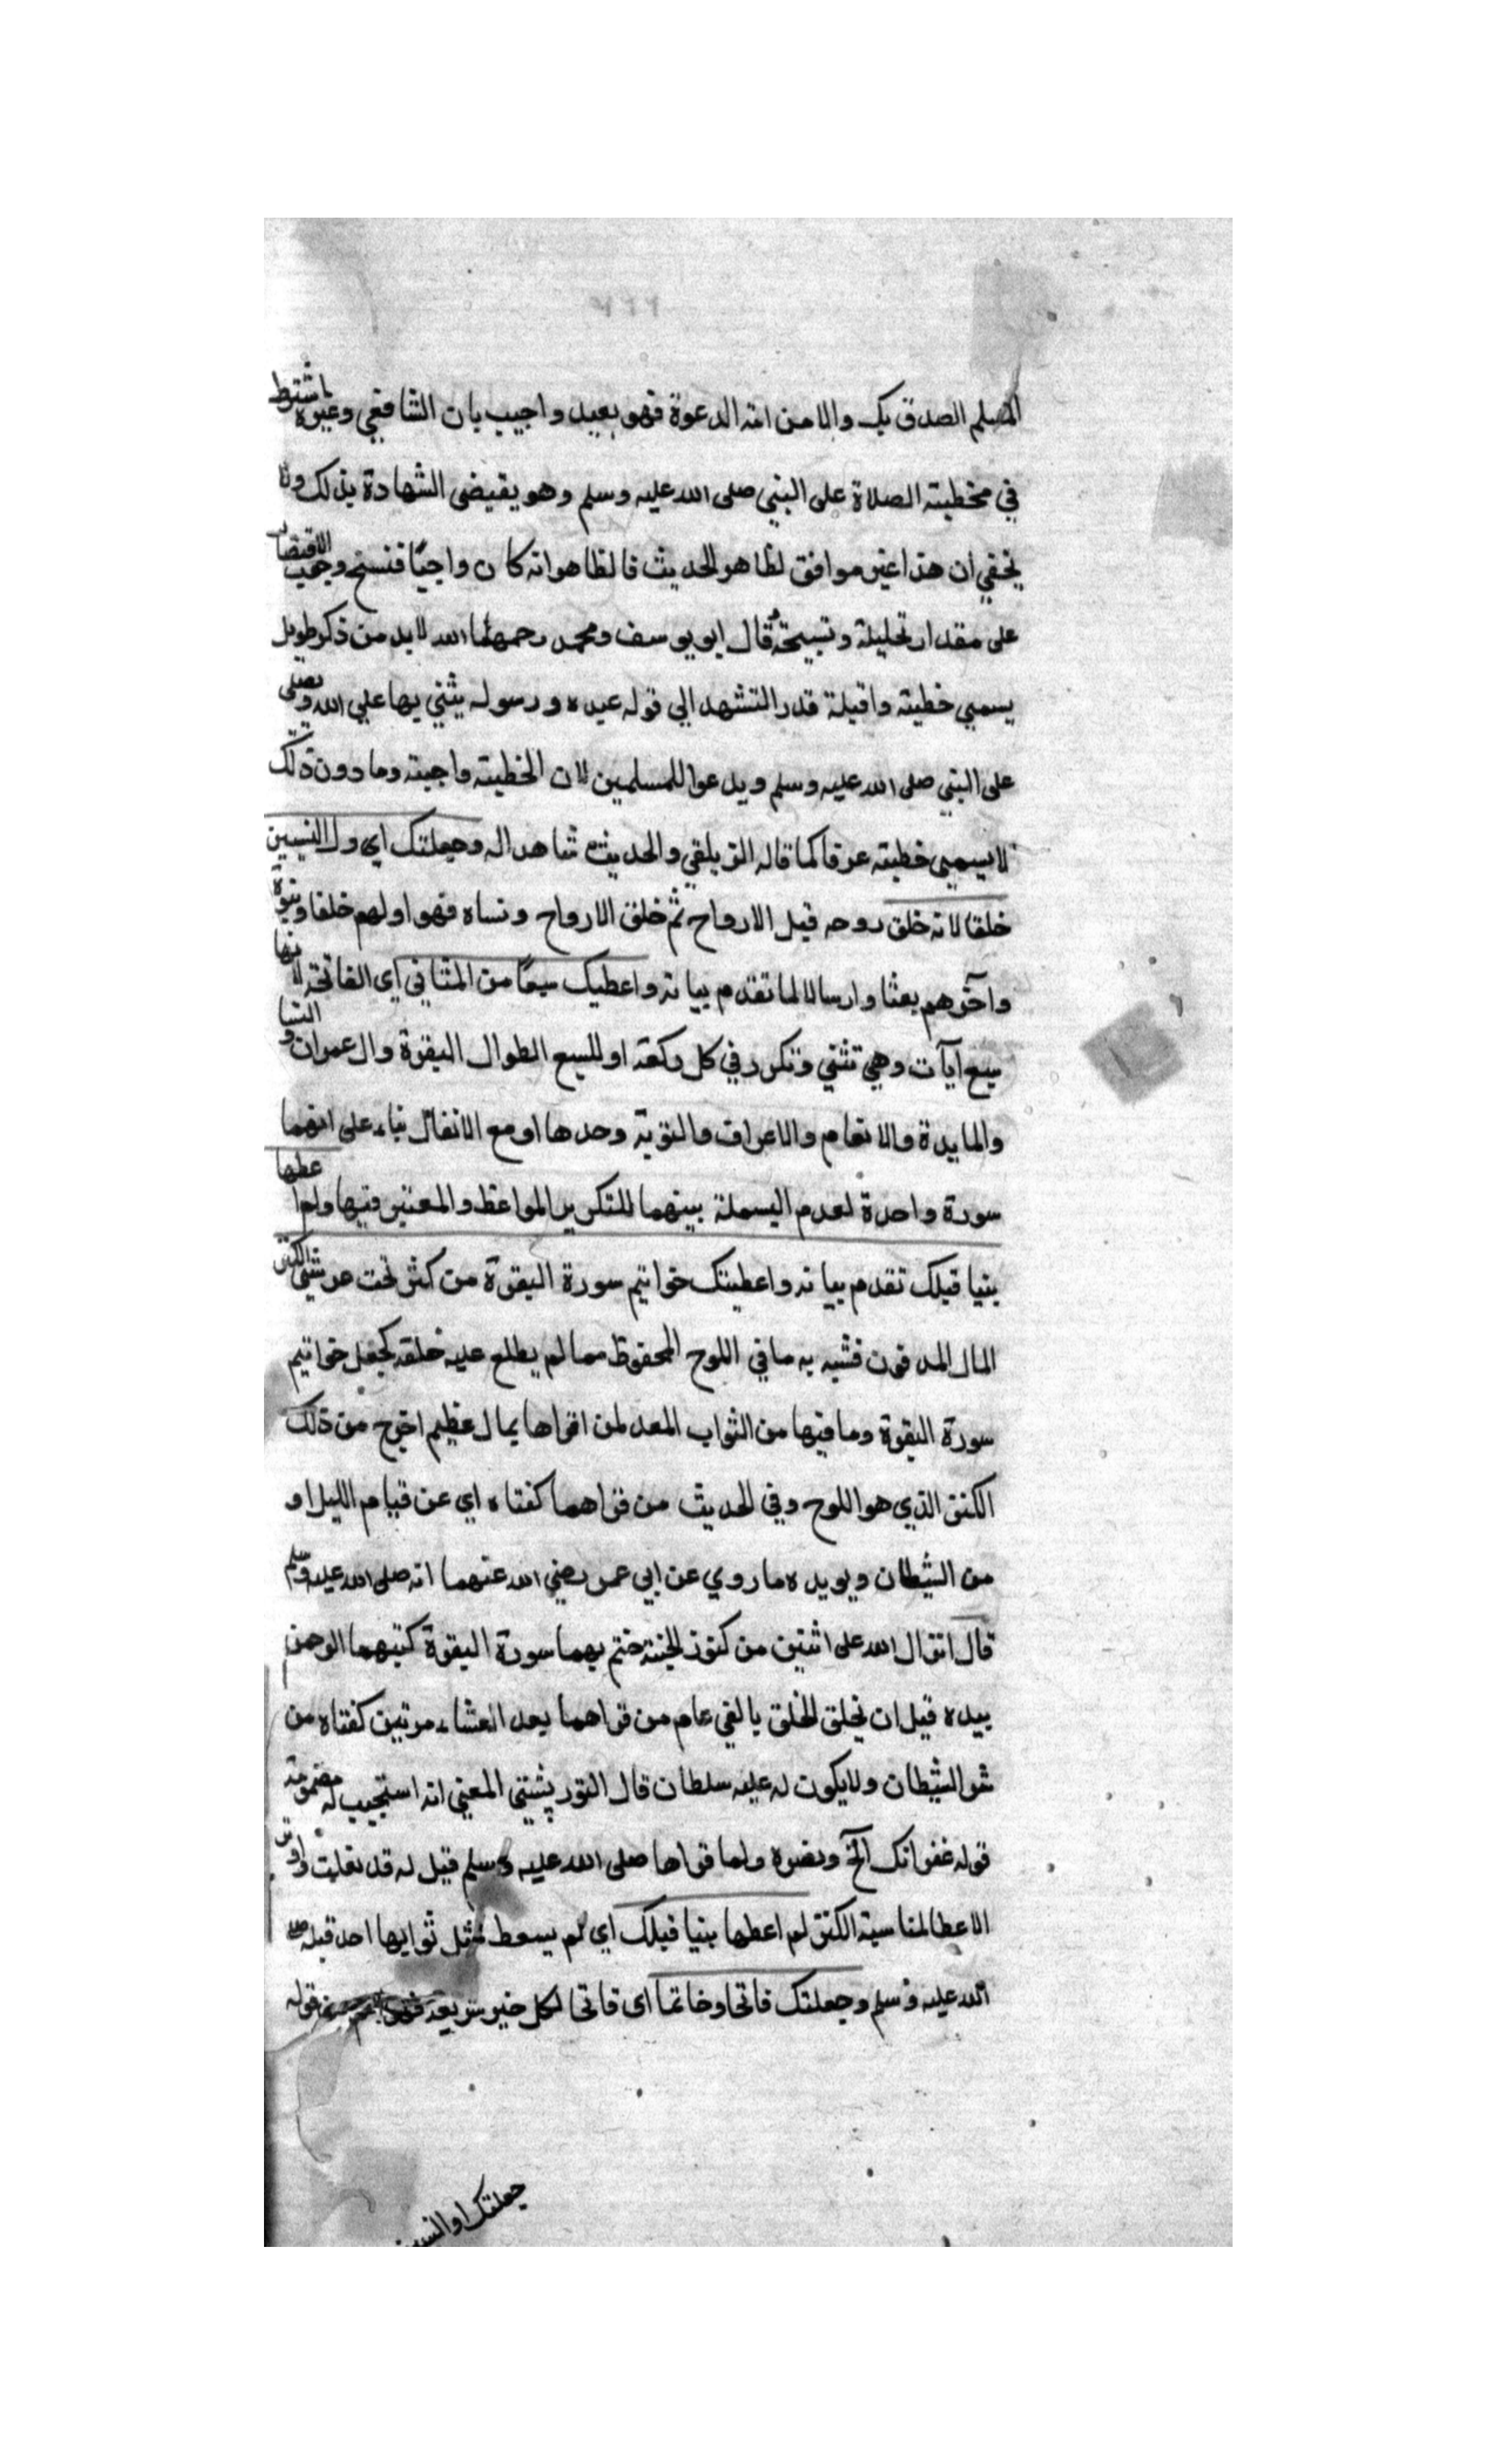 المسلم الصدق بك والا من امة الدعوة فهو بعيد واجيب بان الشافعي وغيره اشترط
في خطبته الصلاة على النبي صلى الله عليه وسلم وهو يقيضي الشهادة بذلك ولا
يخفي ان هذا غير موافق لظاهر الحديث فالظاهر انه كان واجبًا فنسخ وجب الاقتصار
على مقدار تحليلة وتسبيحة قال ابو يوسف ومحمد رحمهما الله لا بد من ذكر طويل
يسمي خطبته واقله قدر التشهد الي قوله عبده ورسوله يثني بها علي الله ويصلى
على النبي صلى الله عليه وسلم ويدعوا للمسلمين لان الخطبته واجبته وما دون ذلك
لا يسمي خطبته عرفا كما قاله الزيلقي والحديث شاهد اله وجعلتك اي ول النبيين
خلقا لانه خلق روحه قبل الارواح ثم خلق الارواح ونساه فهو اولهم خلقا ونبوة
واخرهم بعثا وارسالا لما تقدم بيانه واعطيك سبعًا من المثاني اي الفاتحة لانها
سبع آيات وهي تثني وتكرر في كل ركعة او للسبع الطوال البقرة وال عمران والنسا
والمايدة والانعام والاعراف والتوبة وحدها او مع الانفال بناء على انهما
سورة واحدة لعدم البسملة بينهما للتكرير المواعظ والمعنين فيها ولم اعطها
بنيا قبلك تقدم بيانه واعطيتك خواتيم سورة البقرة من كنز تحت عرشي الكنز
المال المدفون فشبه به مافي اللوح المحفوظ مما لم يطلع عليه خلقه كجعل خواتيم
سورة البقرة وما فيها من الثواب المعد لمن اقراها بمال عظيم اخرج من ذلك
الكنز الذي هو اللوح وفي الحديث من قراهما كفتاه اي عن قيام الليل او
من الشيطان ويويده ما روي عن ابي عمر رضي الله عنهما انه صلى الله عليه وسلم
قال انزال الله على اثنتين من كنوز الجنته ختم بهما سورة البقرة كتبهما الرحمن
بيده قبل ان يخلق الخلق بالفي عام من قراهما بعد العشاء مرتين كفتاه من
شر الشيطان ولا يكون له عليه سلطان قال التورپشتي المعني انه استجيب له مضمونه
قوله غفرانك آلخ ونصره ولما قراها صلى الله عليه وسلم قيل له قد نعلت واوثر
الاعطا لمناسبة الكنز لم اعطها بنيا قبلك اي لم يسعط مثل ثوابها احد قبله صلى
الله عليه وسلم وجعلتك فاتحا وخاتما اى فاتحا لكل خير شريعة قوله
جعلتك او النبيين